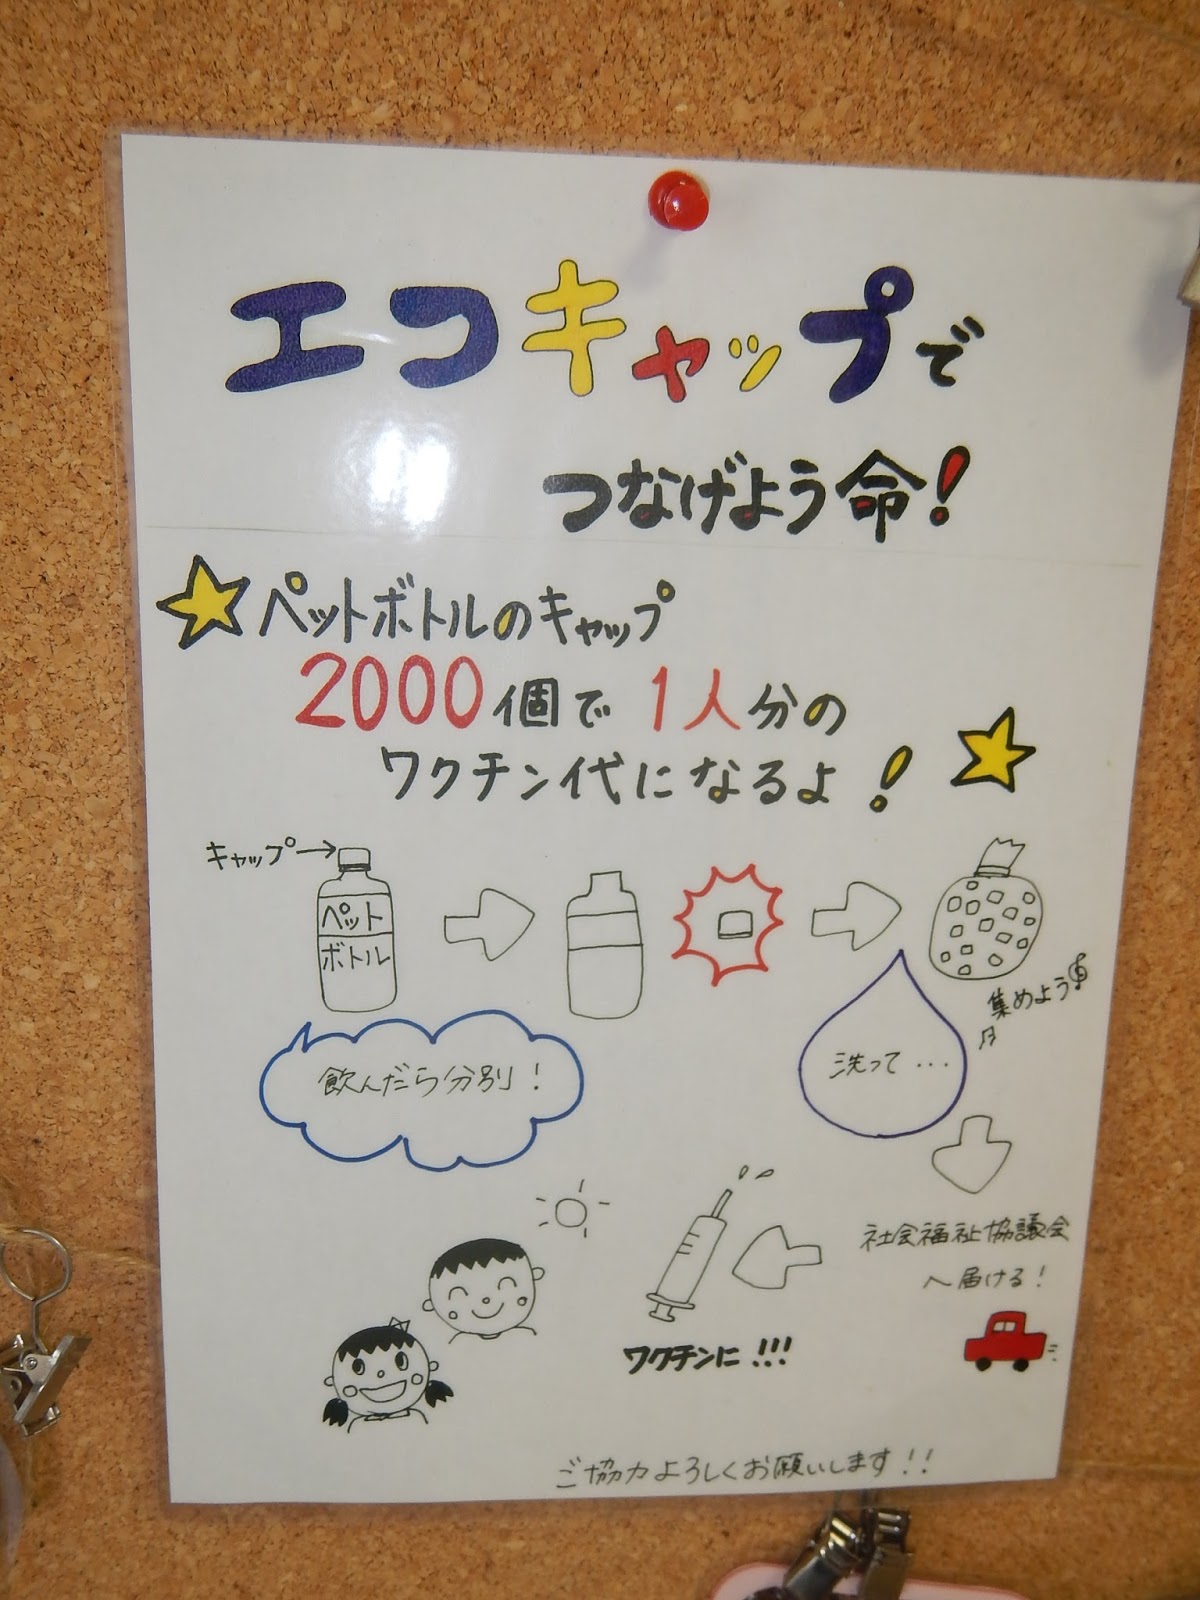 エコキャップで
つなげよう命!
ペットボトルのキャップ
2000個で1人分の
ワクチン代になるよ!
キャップ→
ペット
ボトル
集めよう
飲んだら分別!
洗って...
社会福祉協議会
へ届ける!
ワクチンに!!!
ご協力よろしくお願いします!!